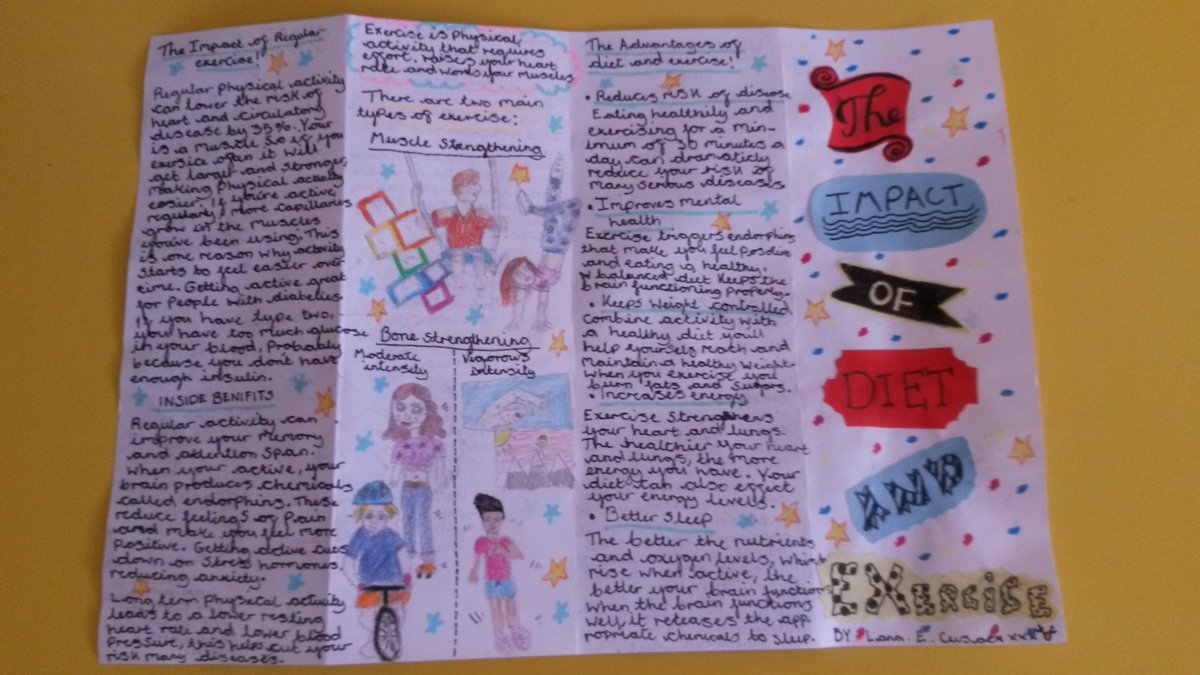 The Impact of Regular
exercise!
Regular Physical activity
can lower the risk of
heart and circulatory
disease by 35%. Your
is a muscle so if you
exersice often it will
get larger and stronger,
making physical activity
easier. If you're active
regularly, more capillaries
grow in the muscles
you've been using. This
is one reason why activity
starts to feel easier over
time. Getting active great
for People with diabetes.
If you have type two,
you have too much glucose
in your blood, Probably
because you don't have
enough insulin.
INSIDE BENIFITS
Regular activity can
improve your memory
and attention span.
When your active, your
brain produces chemicals
called endorphins. These
reduce feelings of Pain
and make you feel more
Positive. Getting active
down on stress hormones,
reducing anxiety.
Long term physical activity
leads to a lower resting
heart rate and lower blood
Pressure, this helps cut your
risk many diseases.
Exercise is Physical
activity that requires
effort, raises your heart
rate and works your muscles
There are two main
types of exercise:
Muscle Stengthening
Bone strengthening
Moderate
intensity
Vigorous
intensity
The Advantages of
diet and exercise!
• Reduces risk of disease
Eating healthily and
exercising for a min-
imum of 30 minutes a
day can dramaticly
reduce your risk of
many serious diseases
• Improves mental
health
Exercise triggers endorphins
that make you feel positive
and eating a healthy,
balanced diet keeps the
brain functioning properly.
• Keeps Weight controlled
combine activity with
a healthy diet you'll
help yourself reach and
Maintain a healthy Weight.
When you exercise you
burn fats and sugars.
• Increases energy
Exercise strengthens
your heart and lungs.
The healthier your heart
and lungs, the more
energy you have. Your
diet can also effect
your energy levels.
• Better sleep
The better the nutrients
and oxygen levels, which
rise when active, the
better your brain functions
When the brain functions
well, it releases the app-
ropriate chemicals to sleep.
The
IMPACT
OF
DIET
AND
EXErcise
BY Lana. E. Cusack xxx